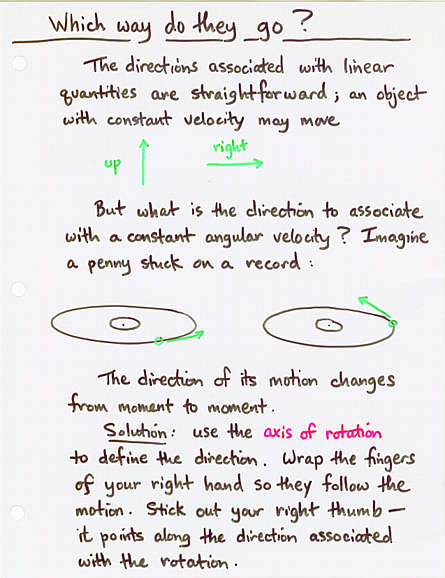 Which way do they go ?
The directions associated with linear
quantities are straightforward ; an object
with constant velocity may move
right
up
But what is the direction to associate
with a constant angular velocity ? Imagine
a penny stuck on a record :
The direction of its motion changes
from moment to moment.
Solution : use the axis of rotation
to define the direction. Wrap the fingers
of your right hand so they follow the
motion. Stick out your right thumb —
it points along the direction associated
with the rotation.